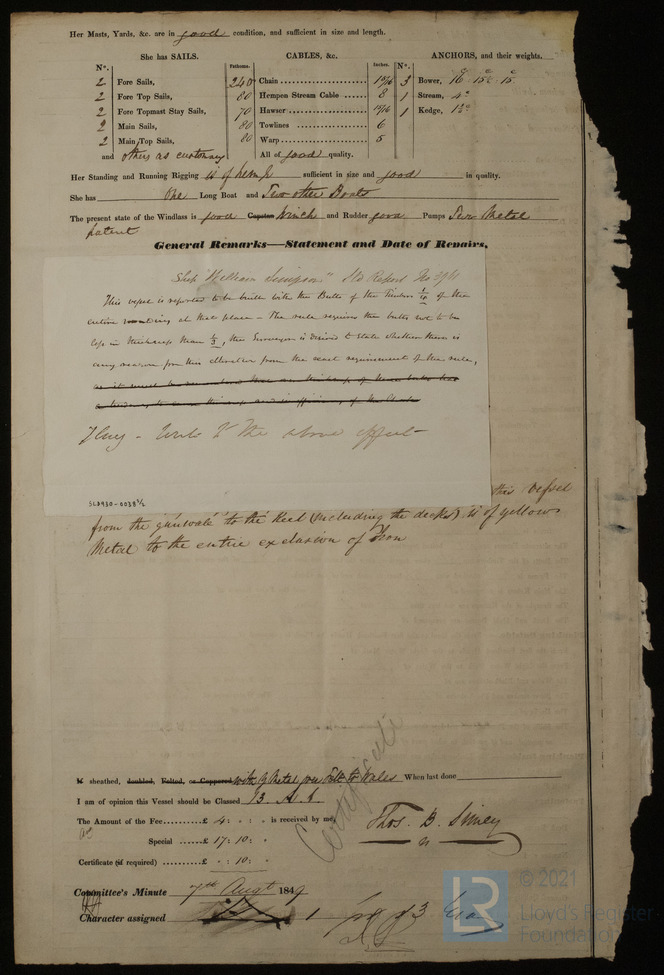 Her Masts, Yards, &c. are in good condition, and sufficient in size and length.
She has SAILS.
CABLES, &c.
ANCHORS, and their weights.
N°. Fathoms. Inches. N°.
2 Fore Sails, 240 Chain 3 Bower,
2 Fore Top Sails, 80 Hempen Stream Cable 8 1 Stream,
2 Fore Topmast Stay Sails, 70 Hawser 1 Kedge,
2 Main Sails, 80 Towlines 6
2 Main Top Sails, 80 Warp 5
and others as customary All of good quality.
Her Standing and Running Rigging is of hemp sufficient in size and good in quality.
She has One Long Boat and Two other Boats
The present state of the Windlass is good Capstan Winch and Rudder good Pumps Two Metal
patent
General Remarks—Statement and Date of Repairs.
Ship "William Simpson"
This vessel is reported to be built with the Butts of the Timbers 1/4 of the
entire moulding at that place - The rule requires the butts not to be
less in thickness than 1/3, the Surveyor is desired to state whether there is
any reason for this alteration from the exact requirement of the rule,
Write to the above effect
SLD930-0038 1/2
this vessel
from the gunwale to the Keel (including the decks) is of yellow
Metal to the entire exclusion of Iron
If sheathed, doubled, Felted, or Coppered with Y Metal over Felt to Wales When last done
I am of opinion this Vessel should be Classed 13 A.1.
The Amount of the Fee £ 4: is received by me,
Special £ 17: 10:
Certificate (if required) £ 10:
Thos. B. Simey
Certificate
Committee's Minute 7th Augt 1849
Character assigned
© 2021
LR
Lloyd's Register
Foundation